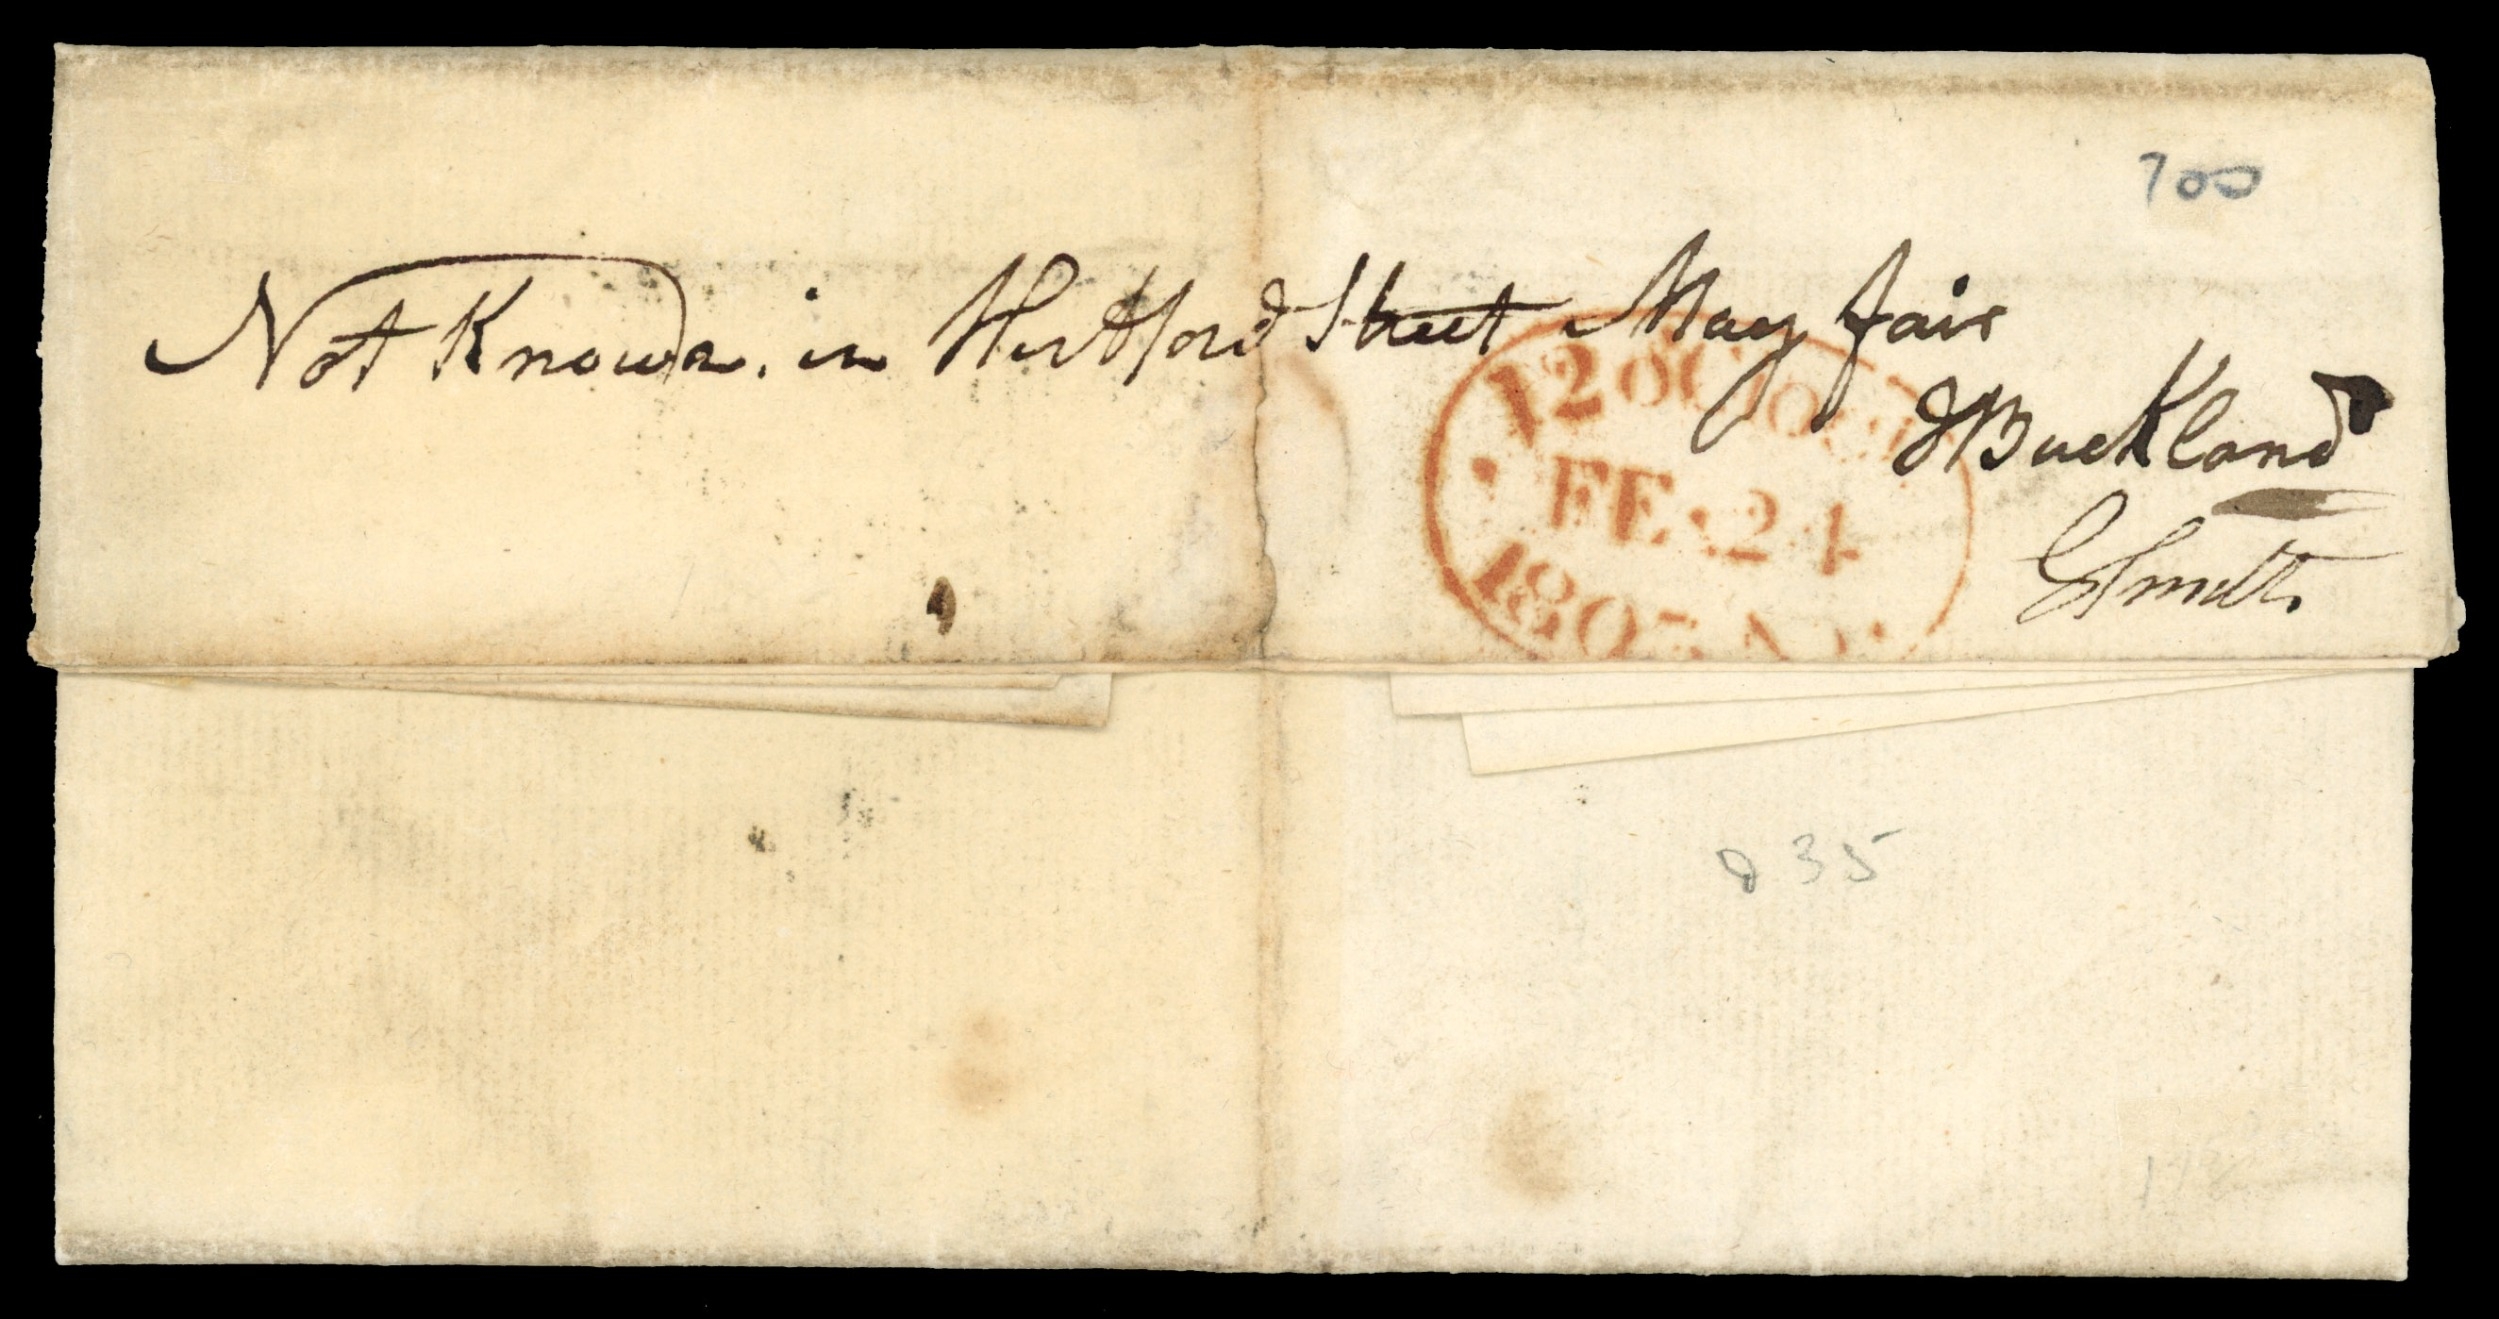 700
Not Known. in Hertford Street May fair
JBuckland
GSmith
12 oClock
FE.24
180 N
835